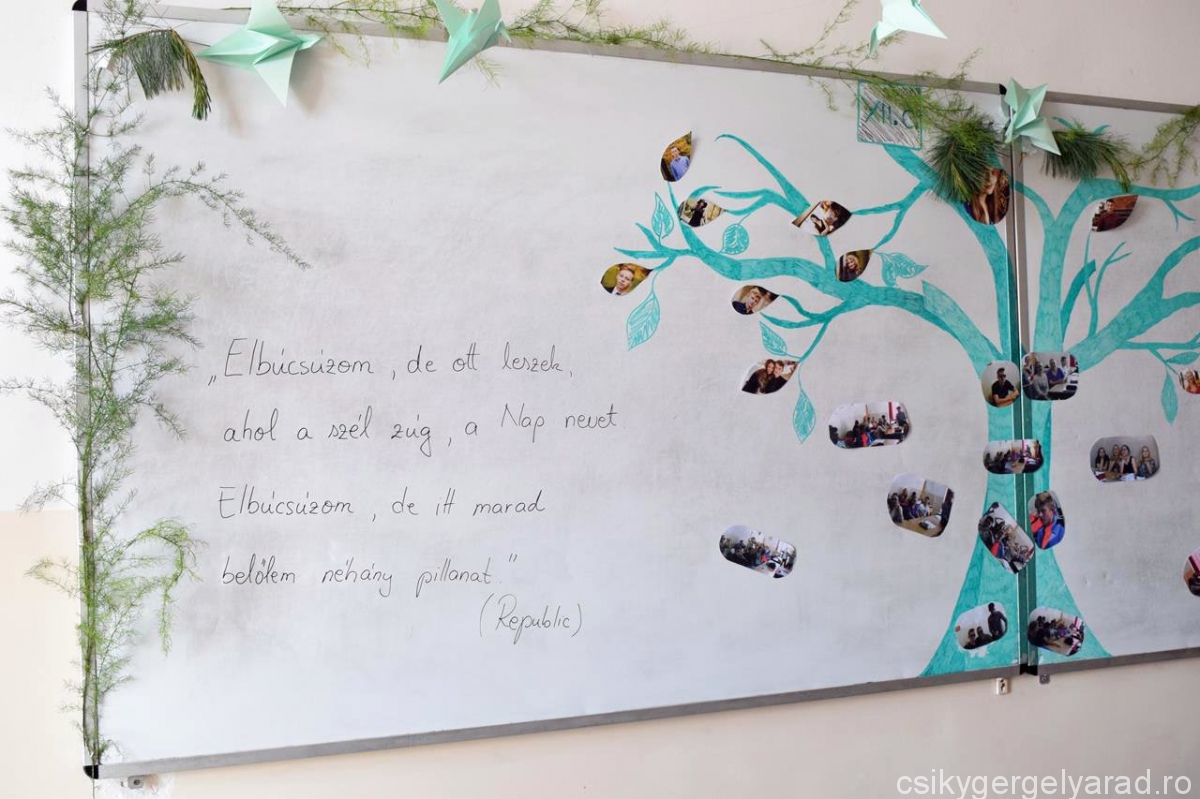 XII. C
„Elbúcsúzom, de ott leszek,
ahol a szél zúg, a Nap nevet
Elbúcsúzom, de itt marad
belőlem néhány pillanat."
(Republic)
csikygergelyarad.ro